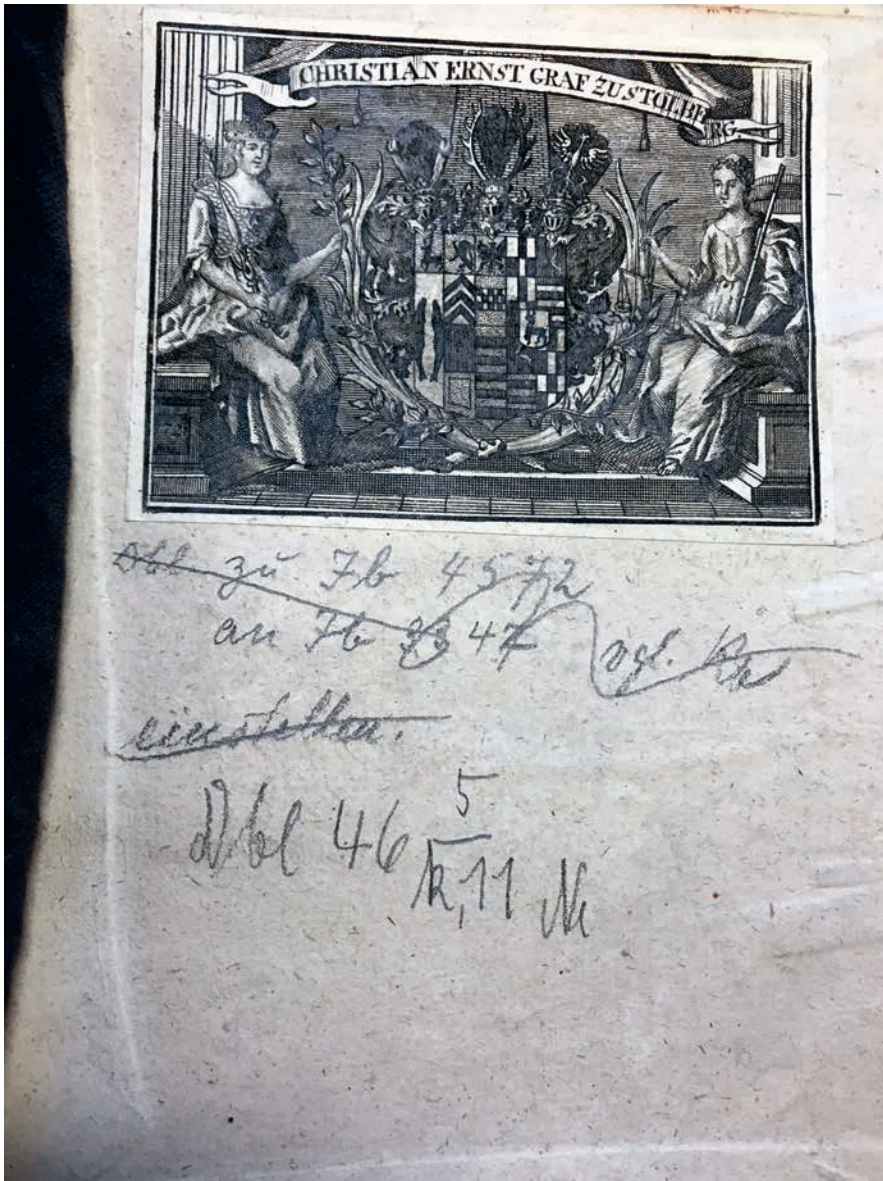 CHRISTIAN ERNST GRAF ZU STOLBERG
Dbl zu Jb 4572
an Jb 3347 vgl.
einstellen.
Dbl 46 5
k,11